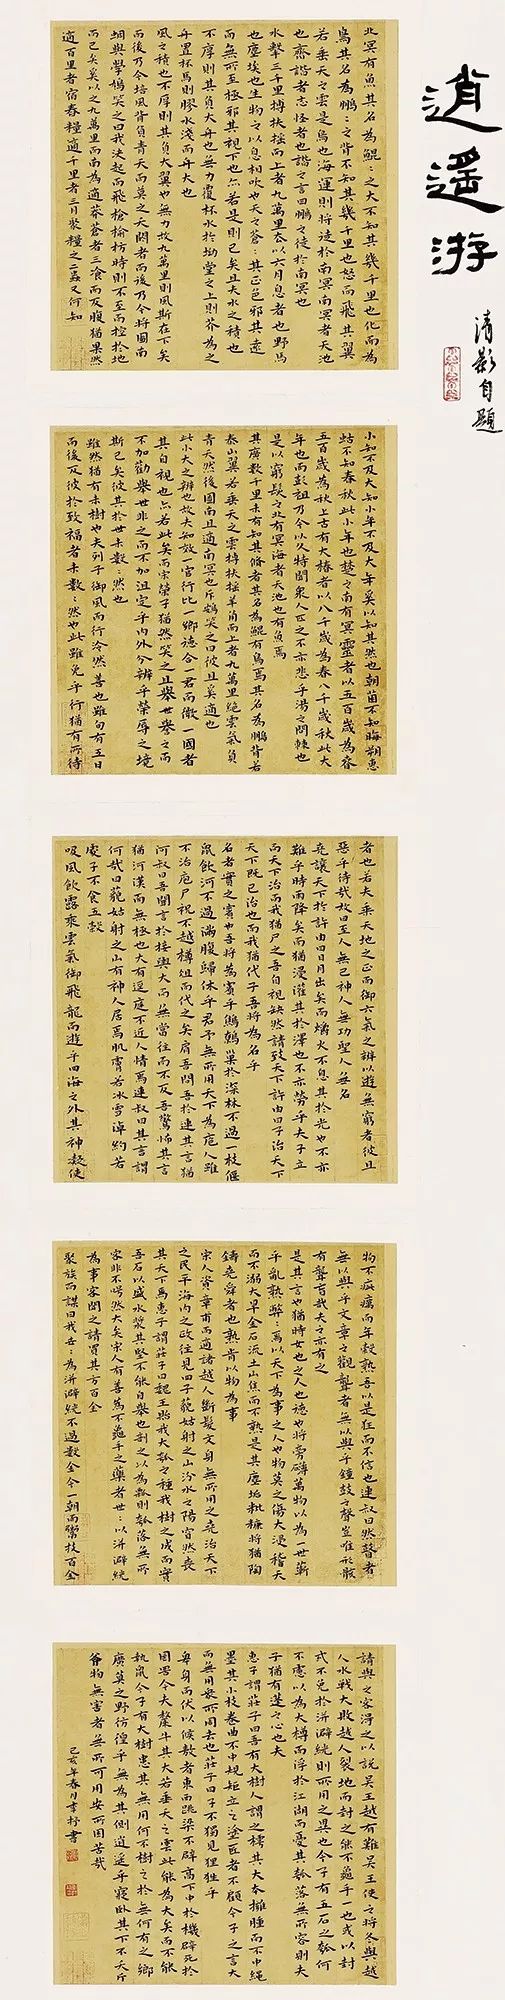 逍遙游
清影自題
北冥有魚其名為鯤〻之大不知其幾千里也化而為
鳥其名為鵬〻之背不知其幾千里也怒而飛其翼
若垂天之雲是鳥也海運則將徙於南冥南冥者天池
也齊諧者志怪者也諧之言曰鵬之徙於南冥也
水擊三千里摶扶搖而上者九萬里去以六月息者也野馬
也塵埃也生物之以息相吹也天之蒼〻其正色邪其遠
而無所至極邪其視下也亦若是則已矣且夫水之積也
不厚則其負大舟也無力覆杯水於坳堂之上則芥為之
舟置杯焉則膠水淺而舟大也
風之積也不厚則其負大翼也無力故九萬里則風斯在下矣
而後乃今培風背負青天而莫之夭閼者而後乃今將圖南
蜩與學鳩笑之曰我決起而飛槍榆枋時則不至而控於地
而已矣奚以之九萬里而南為適莽蒼者三飡而反腹猶果然
適百里者宿舂糧適千里者三月聚糧之二蟲又何知
小知不及大知小年不及大年奚以知其然也朝菌不知晦朔惠
蛄不知春秋此小年也楚之南有冥靈者以五百歲為春
五百歲為秋上古有大椿者以八千歲為春八千歲秋此大
年也而彭祖乃今以久特聞眾人匹之不亦悲乎湯之問棘也
是以窮髮之北有冥海者天池也有魚焉
其廣數千里未有知其脩者其名為鯤有鳥焉其名為鵬背若
泰山翼若垂天之雲摶扶搖羊角而上者九萬里絕雲氣負
青天然後圖南且適南冥也斥鴳笑之曰彼且奚適也
此小大之辨也故夫知效一官行比一鄉德合一君而徵一國者
其自視也亦若此矣而宋榮子猶然笑之且舉世譽之而
不加勸舉世非之而不加沮定乎內外分辨乎榮辱之境
斯已矣彼其於世未數〻然也
雖然猶有未樹也夫列子御風而行泠然善也雖旬有五日
而後反彼於致福者未數〻然也此雖免乎行猶有所待
者也若夫乘天地之正而御六氣之辨以遊無窮者彼且
惡乎待哉故曰至人無己神人無功聖人無名
堯讓天下於許由曰日月出矣而爝火不息其於光也不亦
難乎時雨降矣而猶浸灌其於澤也不亦勞乎夫子立
而天下治而我猶尸之吾自視缺然請致天下許由曰子治天下
天下既已治也而我猶代子吾將為名乎
名者實之賓也吾將為賓乎鷦鷯巢於深林不過一枝偃
鼠飲河不過滿腹歸休乎君予無所用天下為庖人雖
不治庖尸祝不越樽俎而代之矣肩吾問吾於連其言猶
何叔曰吾聞言於接輿大而無當往而不反吾驚怖其言
猶河漢而無極也大有逕庭不近人情焉連叔曰其言謂
何哉曰藐姑射之山有神人居焉肌膚若冰雪淖約若
處子不食五穀
吸風飲露乘雲氣御飛龍而遊乎四海之外其神凝使
物不疵癘而年穀熟吾以是狂而不信也連叔曰然瞽者
無以與乎文章之觀聾者無以與乎鐘鼓之聲豈唯形骸
有聾盲哉夫知亦有之
是其言也猶時女也之人也德也將旁礴萬物以為一世蘄
乎亂孰弊〻焉以天下為事之人也物莫之傷大浸稽天
而不溺大旱金石流土山焦而不熱是其塵垢粃糠將猶陶
鑄堯舜者也孰肯以物為事
宋人資章甫而適諸越人斷髮文身無所用之堯治天下
之民平海內之政往見四子藐姑射之山汾水之陽窅然喪
其天下焉惠子謂莊子曰魏王貽我大瓠之種我樹之成而實
五石以盛水漿其堅不能自舉也剖之以為瓢則瓠落無所
容非不呺然大矣宋人有善為不龜手之藥者世〻以洴澼絖
為事客聞之請買其方百金
聚族而謀曰我世〻為洴澼絖不過數金今一朝而鬻技百金
請與之客得之以說吳王越有難吳王使之將冬與越
人水戰大敗越人裂地而封之能不龜手一也或以封
或不免於洴澼絖則所用之異也今子有五石之瓠何
不慮以為大樽而浮於江湖而憂其瓠落無所容則夫
子猶有蓬之心也夫
惠子謂莊子曰吾有大樹人謂之樗其大本擁腫而不中繩
墨其小枝卷曲不中規矩立之塗匠者不顧今子之言大
而無用眾所同去也莊子曰子不獨見狸狌乎
卑身而伏以候敖者東西跳梁不辟高下中於機辟死於
罔罟今夫斄牛其大若垂天之雲此能為大矣而不能
執鼠今子有大樹患其無用何不樹之於無何有之鄉
廣莫之野彷徨乎無為其側逍遙乎寢臥其下不夭斤
斧物無害者無所可用安所困苦哉
己亥年春月李杍書